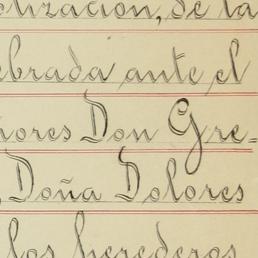 lización, de la
ebrada ante el
ñores Don Gre-
Doña Dolores
los herederos